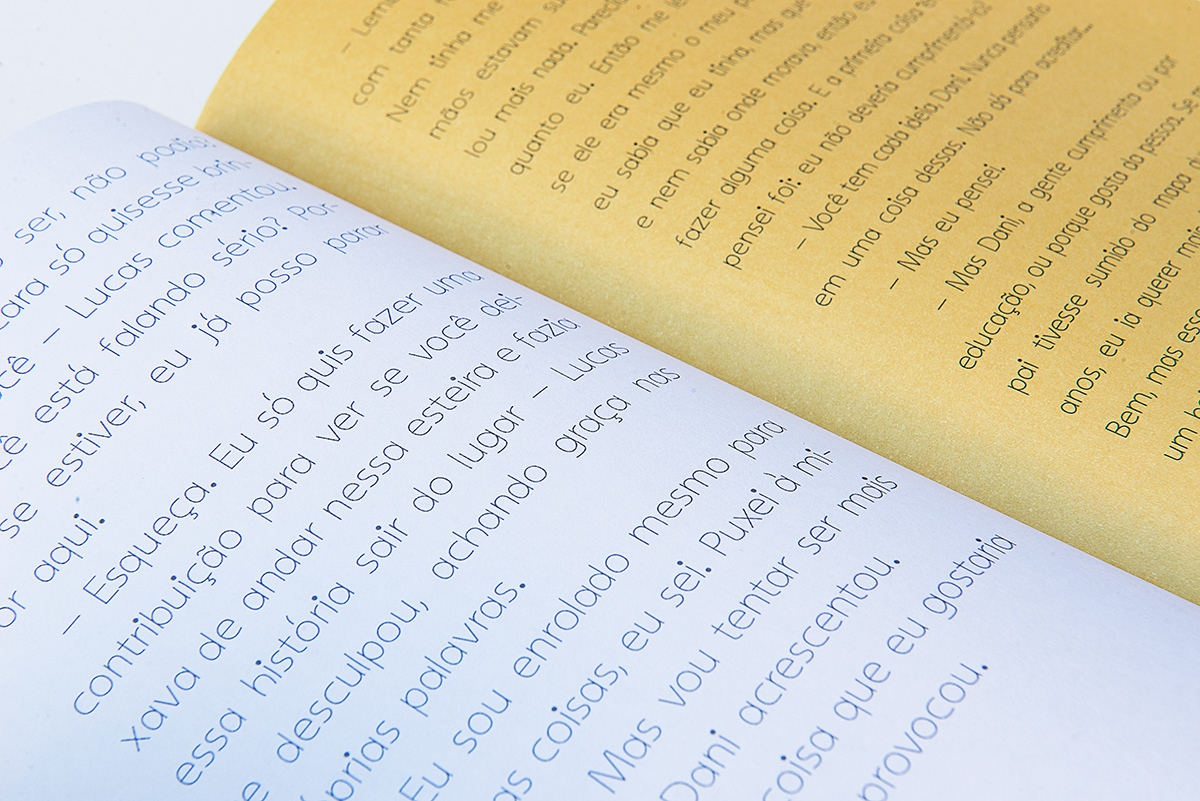 ser, não podia?
cara só quisesse brin-
você – Lucas comentou.
está falando sério? Por-
se estiver, eu já posso parar
por aqui.
– Esqueça. Eu só quis fazer uma
contribuição para ver se você dei-
xava de andar nessa esteira e fazia
essa história sair do lugar – Lucas
se desculpou, achando graça nas
próprias palavras.
Eu sou enrolado mesmo para
as coisas, eu sei. Puxei à mi-
Mas vou tentar ser mais
Dani acrescentou.
coisa que eu gostaria
provocou.
com tanta
Nem tinha me
mãos estavam
lou mais nada.
quanto eu. Então me
se ele era mesmo o meu
eu sabia que eu tinha, mas que
e nem sabia onde morava, então eu
fazer alguma coisa. E a primeira coisa
pensei foi: eu não deveria cumprimentá-lo?
– Você tem cada ideia, Dani. Nunca pensaria
em uma coisa dessas. Não dá para acreditar...
– Mas eu pensei.
– Mas Dani, a gente cumprimenta ou por
educação, ou porque gosta da pessoa. Se
pai tivesse sumido do mapa
anos, eu ia querer mais
Bem, mas esse
um